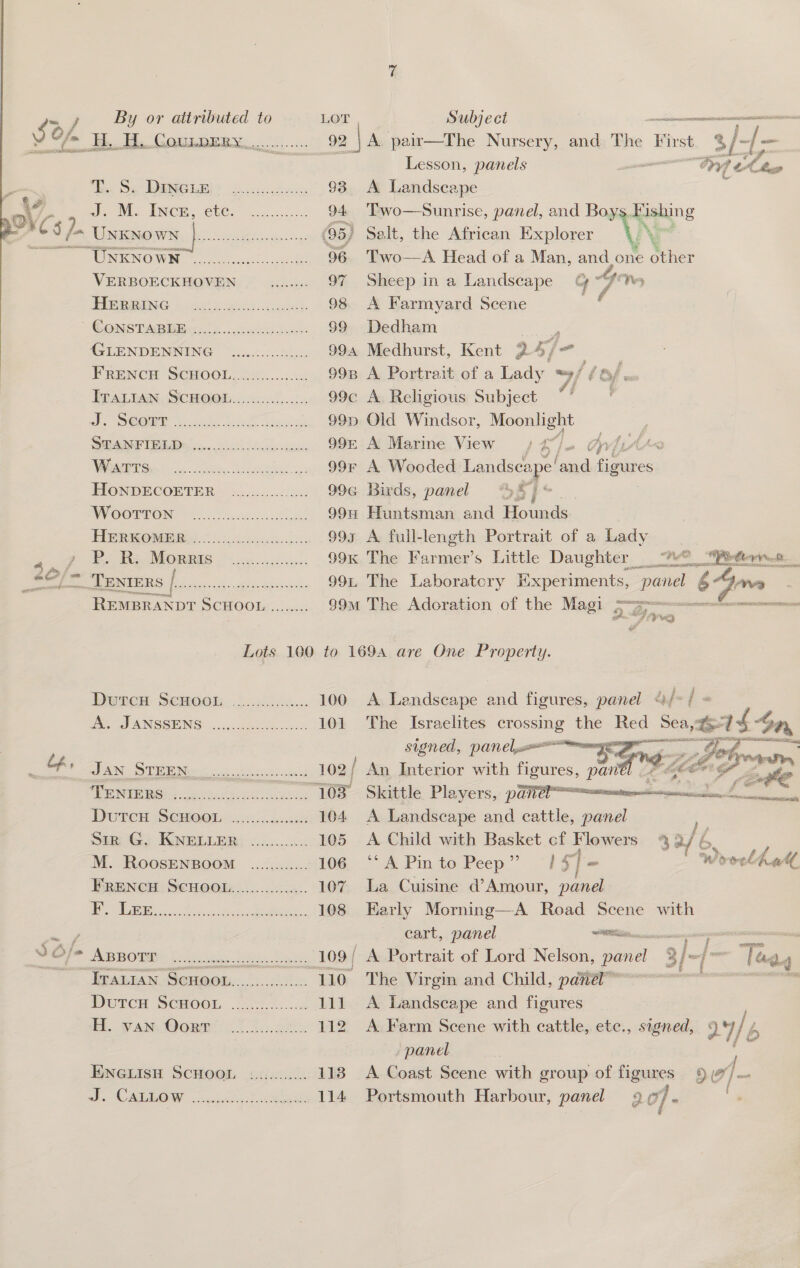 7
By or attributed to LOT Subject
50/- H. H. COULDERY 92 A pair—The Nursery, and The First 3/-/-
Lesson, panels
T. S. DINGLE 93 A Landscape
J. M. INCE, etc. 94 Two—Sunrise, panel, and Boys Fishing
UNKNOWN (95) Salt, the African Explorer
UNKNOWN 96 Two—A Head of a Man, and one other
VERBOECKHOVEN 97 Sheep in a Landscape 4 Gns
HERRING 98 A Farmyard Scene
CONSTABLE 99 Dedham
GLENDENNING 99A Medhurst, Kent 25/-
FRENCH SCHOOL 99B A Portrait of a Lady
ITALIAN SCHOOL 99C A Religious Subject
J. SCOTT 99D Old Windsor, Moonlight
STANFIELD 99E A Marine View
WATTS 99F A Wooded Landscape and figures
HONDECOETER 99G Birds, panel
WOOTTON 99H Huntsman and Hounds
HERKOMER 99J A full-length Portrait of a Lady
P. R. MORRIS 99K The Farmer's Little Daughter
20/- TENIERS 99L The Laboratory Experiments, panel 6 Gns
REMBRANDT SCHOOL 99M The Adoration of the Magi
Lots 100 to 169A are One Property.
DUTCH SCHOOL 100 A Landscape and figures, panel 4/-/-
A. JANSSENS 101 The Israelites crossing the Red Sea, 14 Gn
signed, panel
JAN STEEN 102 An Interior with figures, panel
TENIERS 103 Skittle Players, panel
DUTCH SCHOOL 104 A Landscape and cattle, panel
SIR G. KNELLER 105 A Child with Basket of Flowers 32/6
M. ROOSENBOOM 106 “A Pin to Peep” 15/- Woolhall
FRENCH SCHOOL 107 La Cuisine d'Amour, panel
F. LEE 108 Early Morning—A Road Scene with
cart, panel
50/- ABBOTT 109 A Portrait of Lord Nelson, panel 3/-/- Tagg
ITALIAN SCHOOL 110 The Virgin and Child, panel
DUTCH SCHOOL 111 A Landscape and figures
H. VAN OORT 112 A Farm Scene with cattle, etc., signed, 27/6
panel
ENGLISH SCHOOL 113 A Coast Scene with group of figures
J. CALLOW 114 Portsmouth Harbour, panel 20/-